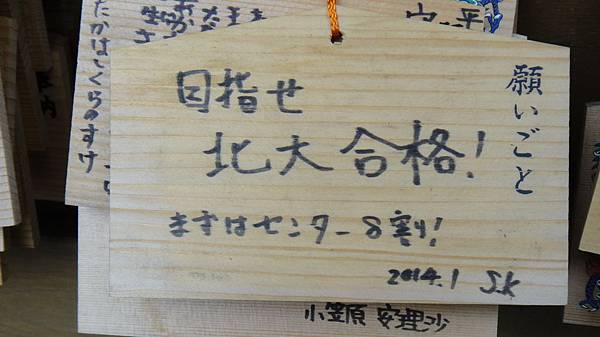 願いごと
目指せ
北大合格!
まずはセンター8割!
2014.1 S.K
小笠原 安理沙
たかはしくらのすけ